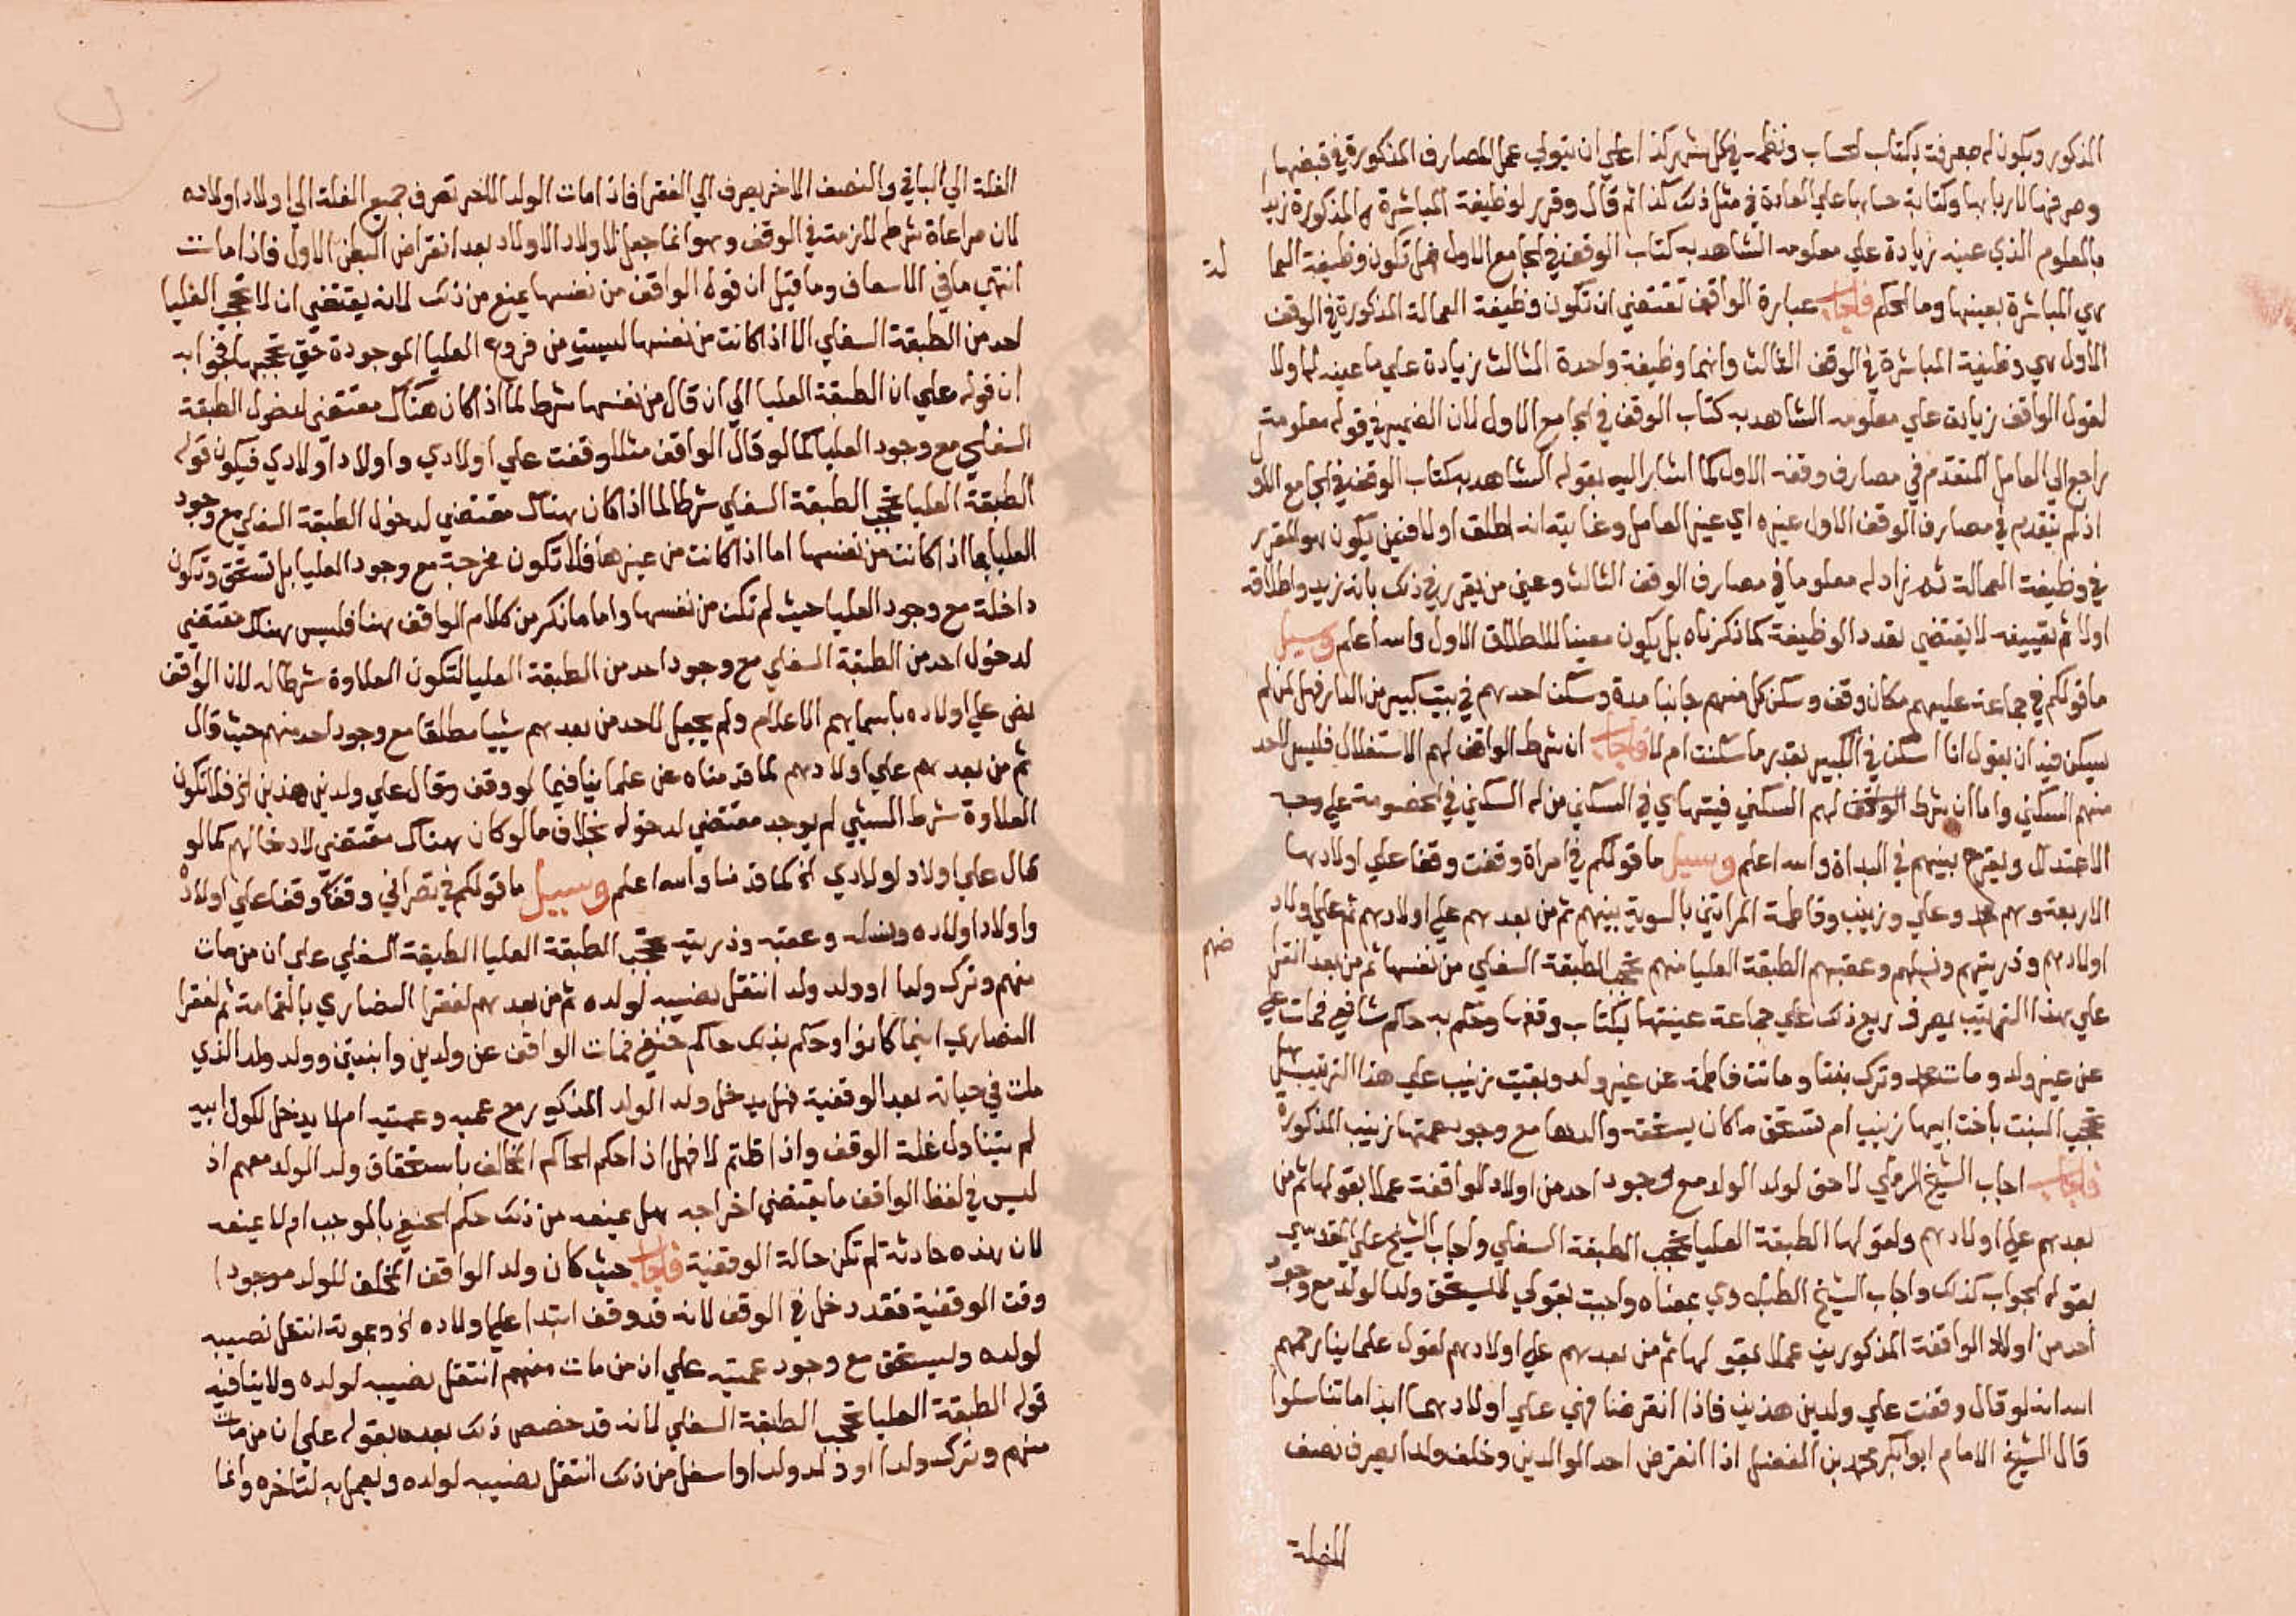 المذكور ويكون له معرفة بكتاب الحساب ونظمه في كل شهر كذا على ان يتولي عمل المصارف المذكورة في قبضها
وصرفها لاربابها وكتابة حسابها علي العادة في مثل ذلك كذا ثم قال وقرر لوظيفة المباشرة المذكورة زيد
بالمعلوم الذي عينه زيادة علي معلومه الشاهد به كتاب الوقف في الجامع الاول فهل تكون وظيفة العما
لة
هي المباشرة بعينها وما الحكم فاجاب عبارة الواقف تقتضي ان تكون وظيفة العمالة المذكورة في الوقف
الاول هي وظيفة المباشرة في الوقف الثالث وانهما وظيفة واحدة الثالث زيادة علي ما عينه لها اولا
لقول الواقف زيادة علي معلومه الشاهد به كتاب الوقف في الجامع الاول لان الضمير في قوله معلومه
راجع الي العامل المتقدم في مصارف وقفه الاول كما اشار اليه بقوله الشاهد به كتاب الوقف في الجامع الاول
اذ لم يتقدم في مصارف الوقف الاول غيره اي غير العامل وغايته انه اطلق اولا فيمن يكون هو المقرر
في وظيفة العمالة ثم زاد له معلوما في مصارف الوقف الثالث وعين من يقرر في ذلك بانه زيد واطلاقه
اولا ثم تقييده لا يقتضي تعدد الوظيفة كما ذكرناه بل يكون معينا للاطلاق الاول والله اعلم وسيل
ما قولكم في جماعة عليهم مكان وقف وسكن كل منهم جانبا مدة وسكن احدهم في بيت كبير من الدار فهل لمن لم
يسكن فيه ان يقول انا اسكن في الكبير بقدر ما سكنت ام لا فاجاب ان شرط الواقف لهم الاستغلال فليس لاحد
منهم السكني واما ان شرط الواقف لهم السكني فيتهاي في السكني من له السكني في الخصومة علي وجه
الاعتدال ويقرع بينهم في البداة والله اعلم وسيل ما قولكم في امراة وقفت وقفا علي اولادها
الاربعة وهم محمد وعلي وزينب وفاطمة المراتين بالسوية بينهم ثم من بعدهم علي اولادهم ثم علي اولاد
اولادهم وذريتهم ونسلهم وعقبهم الطبقة العليا منهم تحجب الطبقة السفلي من نفسها ثم من بعد انقرا
ضهم
علي هذا الترتيب يصرف ريع ذلك علي جماعة عينتها بكتاب وقفها وحكم به حاكم شافعي فمات علي
عن غير ولد ومات محمد وترك بنتا وماتت فاطمة عن غير ولد وبقيت زينب علي هذا الترتيب هل
تحجب البنت باخت ابيها زينب ام تستحق ما كان يستحقه والدها مع وجود عمتها زينب المذكورة
فاجاب اجاب الشيخ الرملي لا حق لولد الولد مع وجود احد من اولاد الواقفة عملا بقولها ثم من
بعدهم علي اولادهم ولقولها الطبقة العليا تحجب الطبقة السفلي واجاب الشيخ علي المقدسي
بقوله الجواب كذلك واجاب الشيخ الطبلاوي بمعناه واجبت بقولي لا يستحق ولد الولد مع وجود
احد من اولاد الواقفة المذكورين عملا بقولها ثم من بعدهم علي اولادهم لقول علماينا رحمهم
الله انه لو قال وقفت علي ولدين هذين فاذا انقرضا فهي علي اولادهما ابدا ما تناسلوا
قال الشيخ الامام ابو بكر محمد بن الفضل اذا انقرض احد الوالدين وخلف ولدا يصرف نصف
الغلة
الغلة الي الباقي والنصف الاخر يصرف الي الفقرا فاذا مات الولد الاخر تصرف جميع الغلة الي اولاد اولاده
لان مراعاة شرطه لازمة في الوقف وهو انما جعل لاولاد الاولاد بعد انقراض البطن الاول فاذا مات
انتهي ما في الاسعاف وما قيل ان قوله الواقف من نفسها يمنع من ذلك لانه يقتضي ان لا تحجب العليا
احد من الطبقة السفلي الا اذا كانت من نفسها ليست من فروع العليا الموجودة حتي تحجبها فجوابه
ان قوله علي ان الطبقة العليا الي ان قال من نفسها شرط لما اذا كان هناك مقتضي لدخول الطبقة
السفلي مع وجود العليا كما لو قال الواقف مثلا وقفت علي اولادي واولاد اولادي فيكون قوله
الطبقة العليا تحجب الطبقة السفلي شرطا لما اذا كان هناك مقتضي لدخول الطبقة السفلي مع وجود
العليا بما اذا كانت من نفسها اما اذا كانت من غيرها فلا تكون مخرجة مع وجود العليا بل تستحق وتكون
داخلة مع وجود العليا حيث لم تكن من نفسها واما ما ذكر من كلام الواقف هنا فليس هناك مقتضي
لدخول احد من الطبقة السفلي مع وجود احد من الطبقة العليا لتكون العلاوة شرطا له لان الواقف
نص علي اولاده باسمايهم الاعلام ولم يجعل لاحد من بعدهم شييا مطلقا مع وجود احد منهم حيث قال
ثم من بعدهم علي اولادهم لما قدمناه عن علماينا فيما لو وقف وقال علي ولدين هذين الخ فلا تكون
العلاوة شرط لشيي لم يوجد مقتضي لدخوله بخلاف ما لو كان هناك مقتضي لادخالهم كما لو
قال علي اولاد اولادي الخ كما قدمنا والله اعلم وسيل ما قولكم في نصراني وقف وقفا علي اولاده
واولاد اولاده ونسله وعقبه وذريته تحجب الطبقة العليا الطبقة السفلي علي ان من مات
منهم وترك ولدا او ولد ولد انتقل نصيبه لولده ثم من بعدهم لفقرا النصاري بالقمامة ثم لفقرا
النصاري اينما كانوا وحكم بذلك حاكم حنفي فمات الواقف عن ولدين وابنتين وولد ولد الذي
مات في حياته بعد الوقفية فهل يدخل ولد الولد المذكور مع عميه وعمتيه ام لا يدخل لكون ابيه
لم يتناول غلة الوقف واذا قلتم لا فهل اذا حكم الحاكم المخالف باستحقاق ولد الولد معهم اذ
ليس في لفظ الواقف ما يقتضي اخراجه هل يمنعه من ذلك حكم الحنفي بالموجب ام لا يمنعه
لان هذه حادثة لم تكن حالة الوقفية فاجاب حيث كان ولد الواقف المخلف للولد موجودا
وقت الوقفية فقد دخل في الوقف لانه قد وقف ابتدا علي اولاده الخ وبموته انتقل نصيبه
لولده وليستحق مع وجود عمتيه علي ان من مات منهم انتقل نصيبه لولده ولا ينافيه
قوله الطبقة العليا تحجب الطبقة السفلي لانه قد خصص ذلك بعده بقوله علي ان من مات
منهم وترك ولدا او ولد ولد او اسفل من ذلك انتقل نصيبه لولده ويعمل به لتاخره وانما